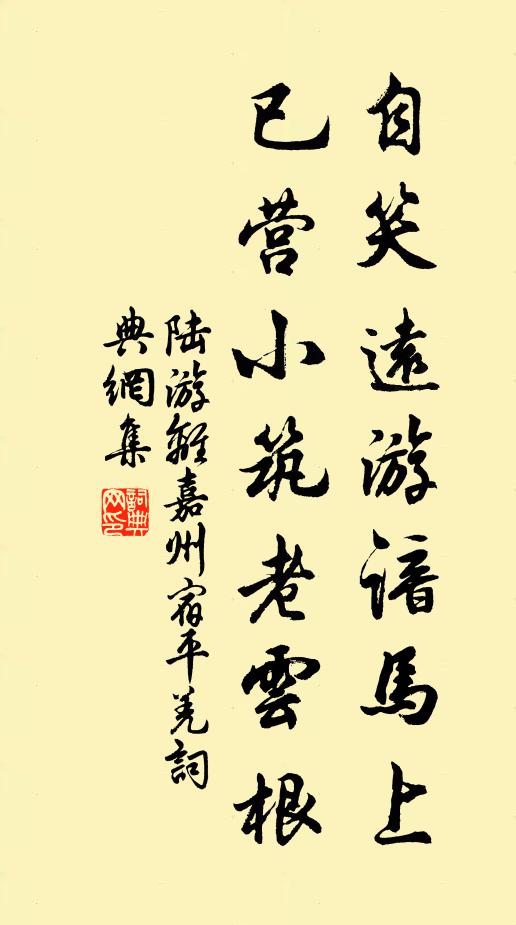 自笑遠游諳馬上
已营小筑老雲根
陆游離嘉州宿平羌詞
典網集
詞典
网印